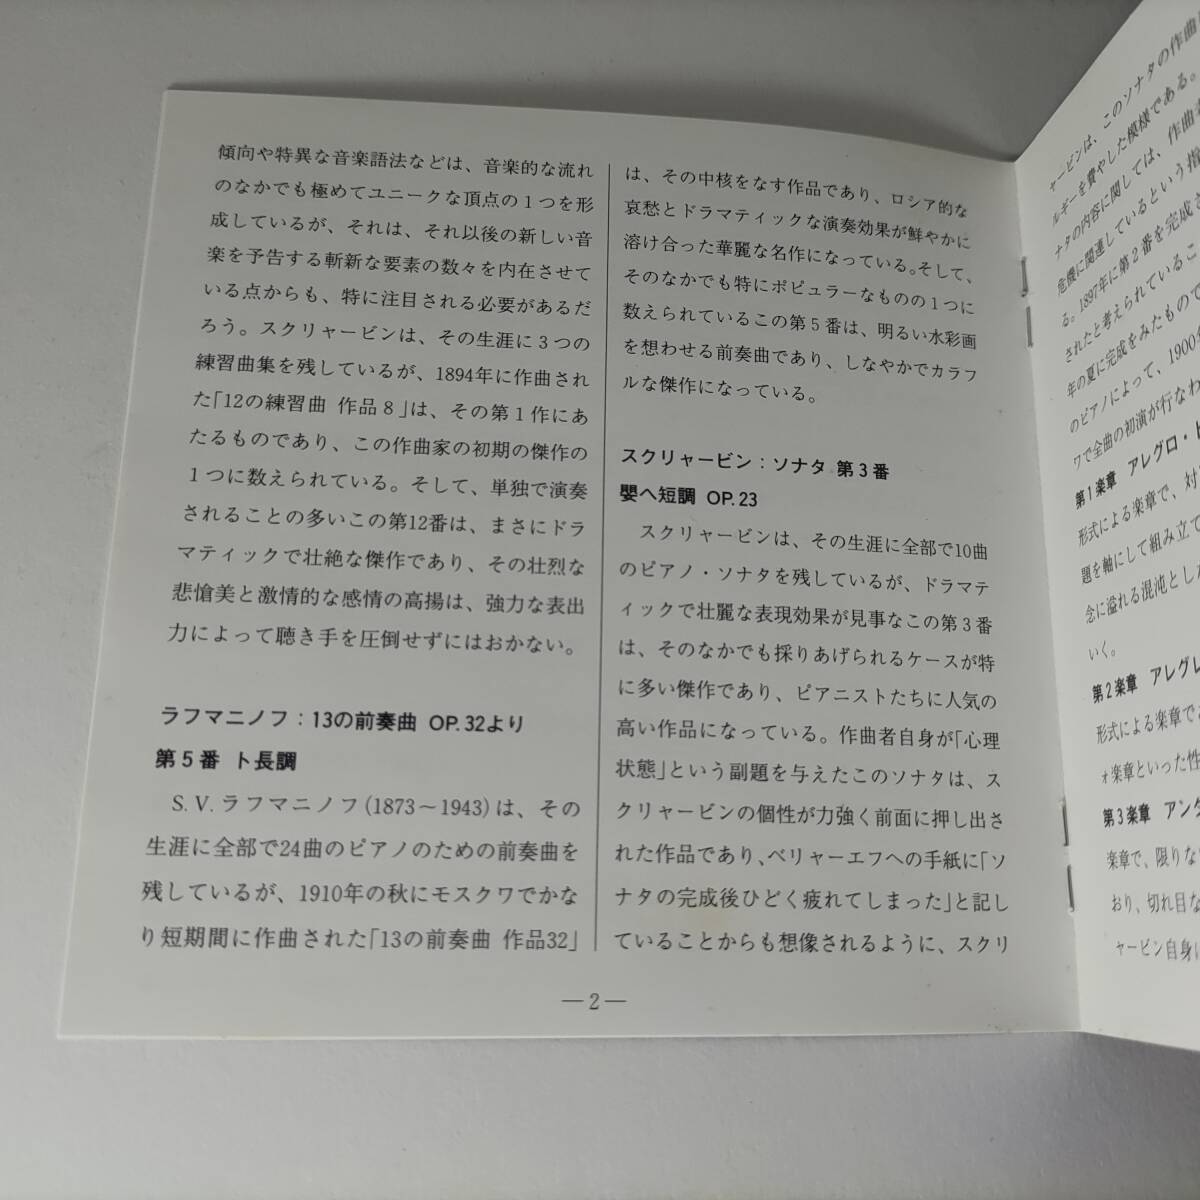 傾向や特異な音楽語法などは、音楽的な流れ
のなかでも極めてユニークな頂点の1つを形
成しているが、それは、それ以後の新しい音
楽を予告する斬新な要素の数々を内在させて
いる点からも、特に注目される必要があるだ
ろう。スクリャービンは、その生涯に3つの
練習曲集を残しているが、1894年に作曲され
た「12の練習曲 作品8」は、その第1作にあ
たるものであり、この作曲家の初期の傑作の
1つに数えられている。そして、単独で演奏
されることの多いこの第12番は、まさにドラ
マティックで壮絶な傑作であり、その壮烈な
悲愴美と激情的な感情の高揚は、強力な表出
力によって聴き手を圧倒せずにはおかない。
ラフマニノフ：13の前奏曲 OP.32より
第5番 ト長調
S.V.ラフマニノフ(1873〜1943)は、その
生涯に全部で24曲のピアノのための前奏曲を
残しているが、1910年の秋にモスクワでかな
り短期間に作曲された「13の前奏曲 作品32」
は、その中核をなす作品であり、ロシア的な
哀愁とドラマティックな演奏効果が鮮やかに
溶け合った華麗な名作になっている。そして、
そのなかでも特にポピュラーなものの1つに
数えられているこの第5番は、明るい水彩画
を想わせる前奏曲であり、しなやかでカラフ
ルな傑作になっている。
スクリャービン：ソナタ 第3番
嬰ヘ短調 OP.23
スクリャービンは、その生涯に全部で10曲
のピアノ・ソナタを残しているが、ドラマテ
ィックで壮麗な表現効果が見事なこの第3番
は、そのなかでも採りあげられるケースが特
に多い傑作であり、ピアニストたちに人気の
高い作品になっている。作曲者自身が「心理
状態」という副題を与えたこのソナタは、ス
クリャービンの個性が力強く前面に押し出さ
れた作品であり、ベリャーエフへの手紙に「ソ
ナタの完成後ひどく疲れてしまった」と記し
ていることからも想像されるように、スクリ
—2—
ャービンは、このソナタの作曲
ルギーを費やした模様である。
ナタの内容に関しては、作曲者
危機に関連しているという指
る。1897年に第2番を完成さ
されたと考えられているこ
年の夏に完成をみたもので
のピアノによって、1900
ワで全曲の初演が行なわ
第1楽章 アレグロ・ド
形式による楽章で、対
題を軸にして組み立て
念に溢れる混沌とした
いく。
第2楽章 アレグレ
形式による楽章でこ
ォ楽章といった性
第3楽章 アンダ
楽章で、限りな
おり、切れ目な
ャービン自身に